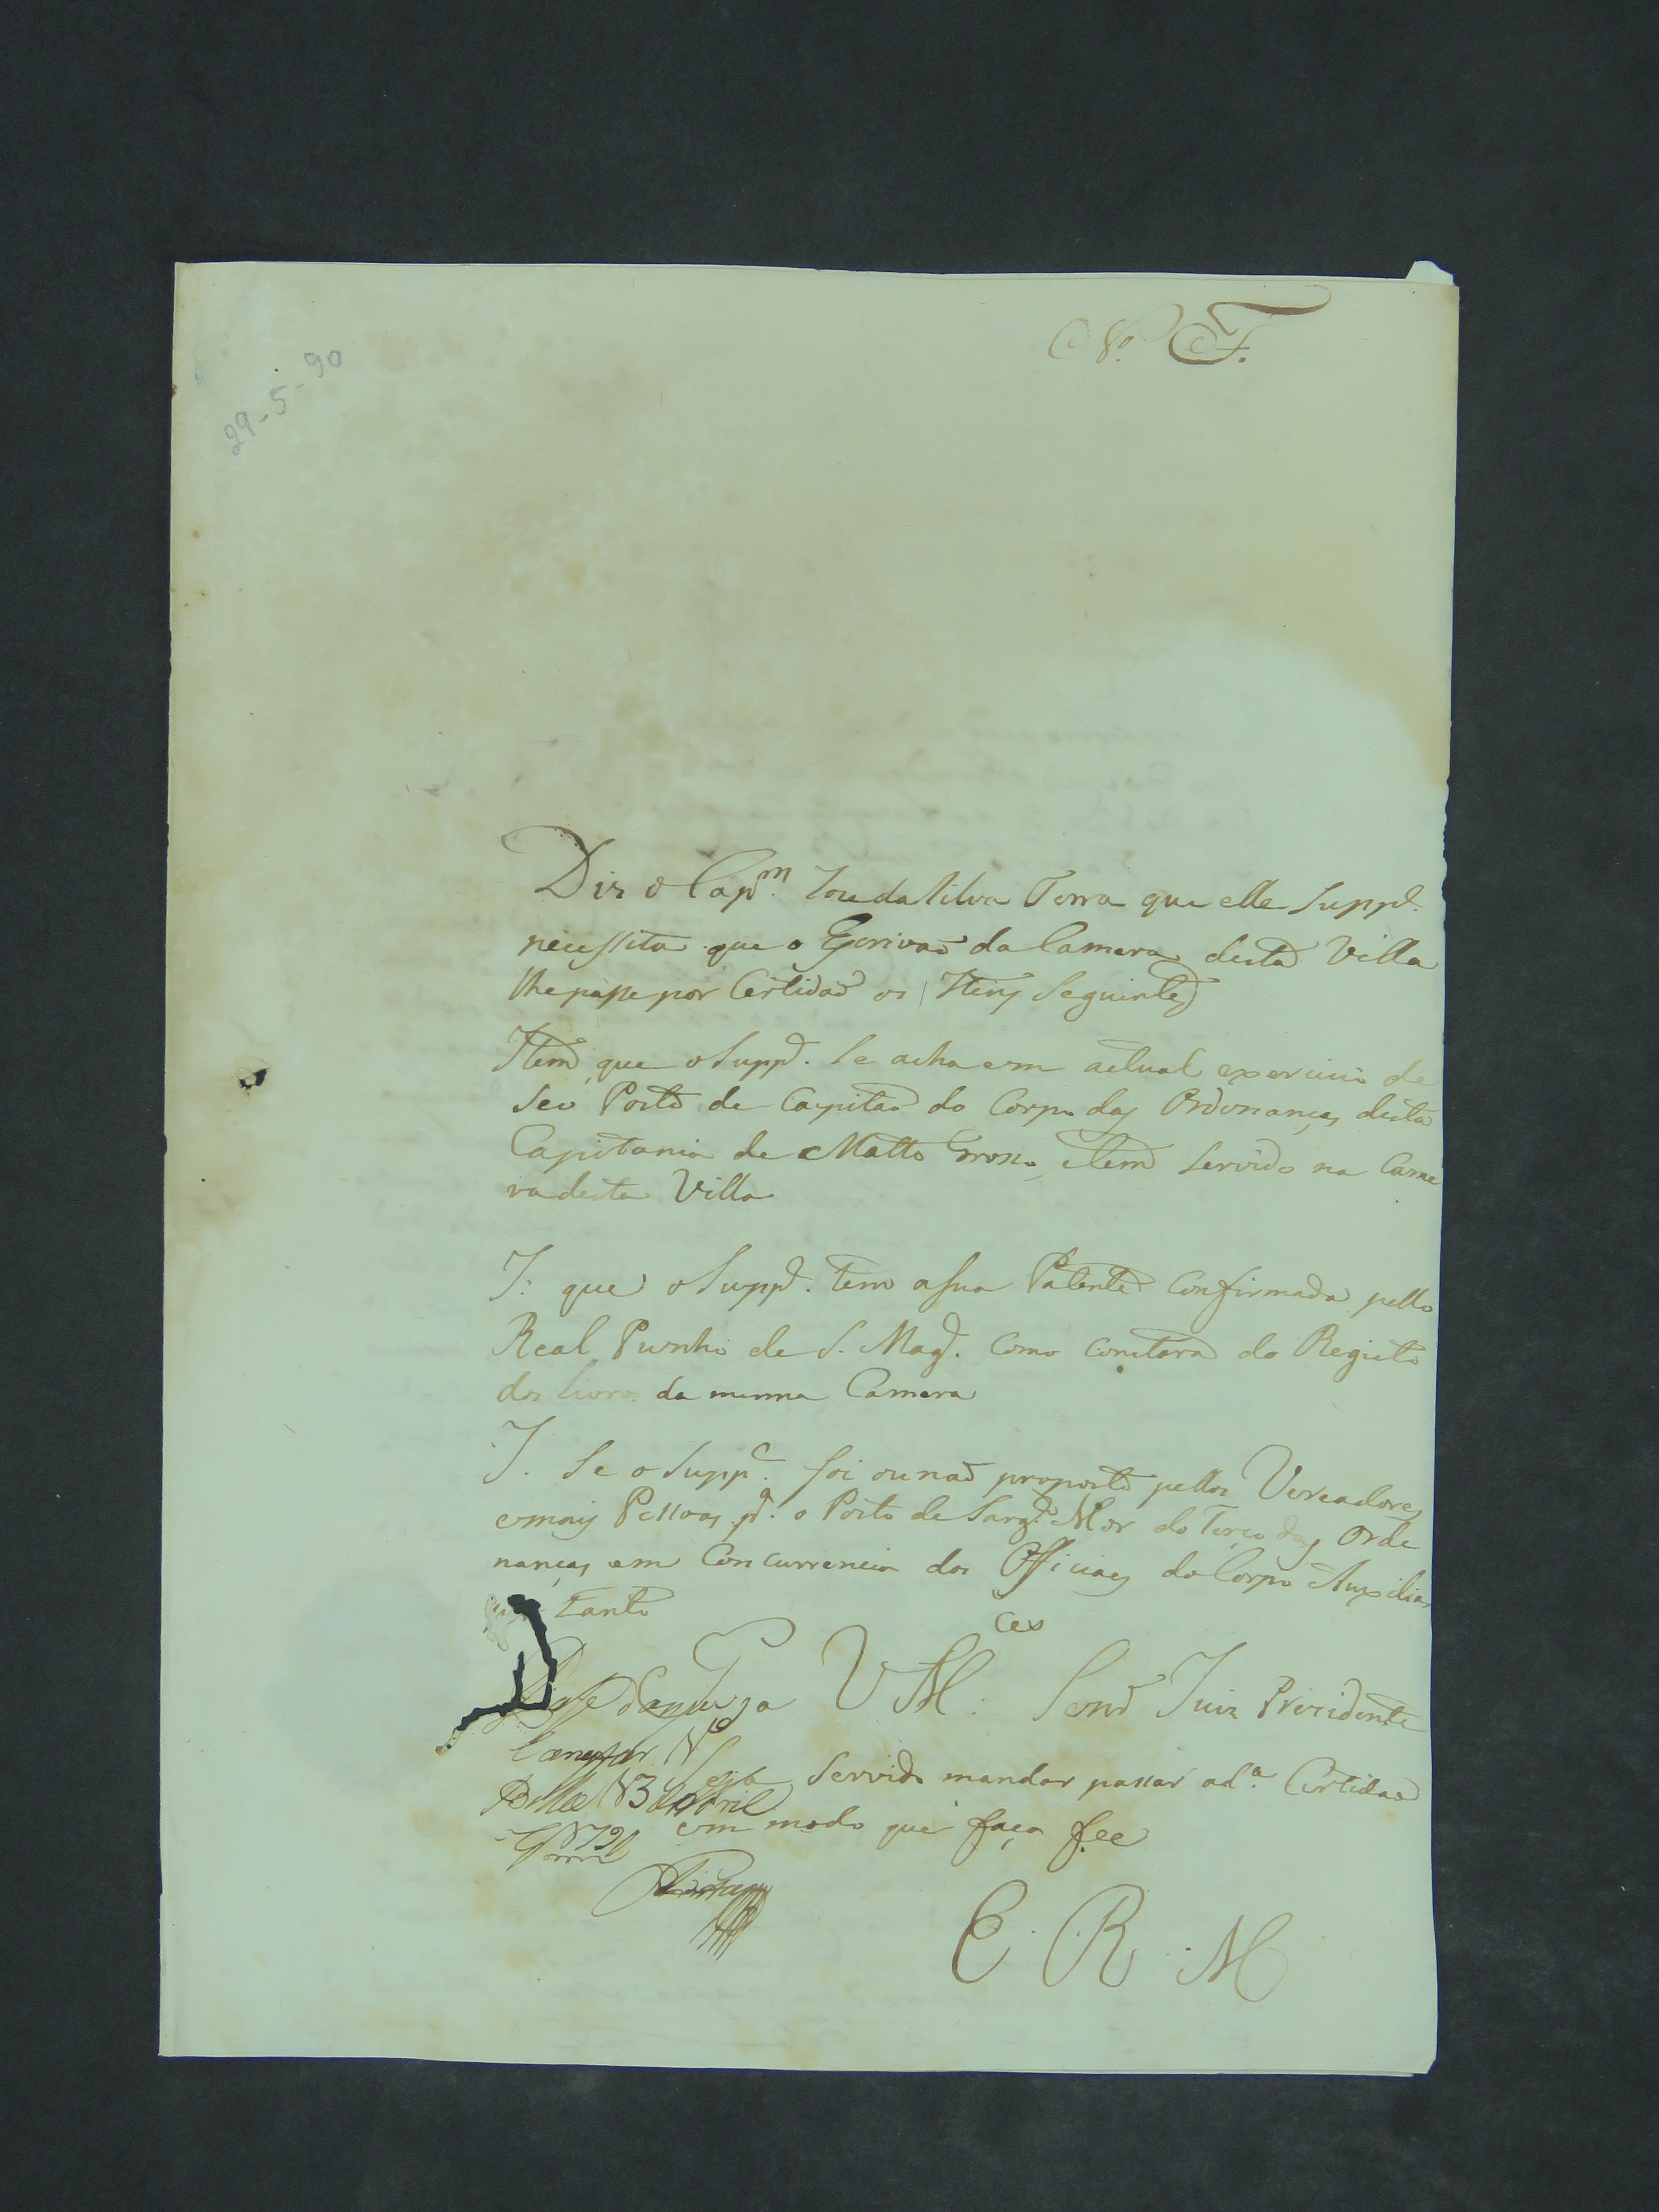 N.º F.
29-5-90
Diz o Cap.m Joze da Silva Terra que elle Supp.e
necessita que o Escrivaõ da Camera desta Villa
lhe passe por Certidaõ os Itens Seguintes
Item que o Supp.e Se acha em actual exercicio de
Seo Posto de Capitaõ do Corpo das Ordenanças desta
Capitania de Matto Grosso, e tem Servido na Came
ra desta Villa
I. que o Supp.e tem a sua Patente Confirmada pello
Real Punho de S. Mag.e como constará do Registo
dos Livros da mesma Camera
I. Se o Supp.e foi ou naõ proposto pellos Vereadores
e mais Pessoas p.a o Posto de Sarg.to Mor do Terço das Orde
nanças em Concurrencia dos Officiaes do Corpo Auxiliar
tanto
P a V M.ces Senr Juiz Prezidente
Seja Servido mandar passar a d.a Certidaõ
em modo que faça fee
Passe do que
constar V.a
Bella 13 de Abril
de 1791
E. R. M